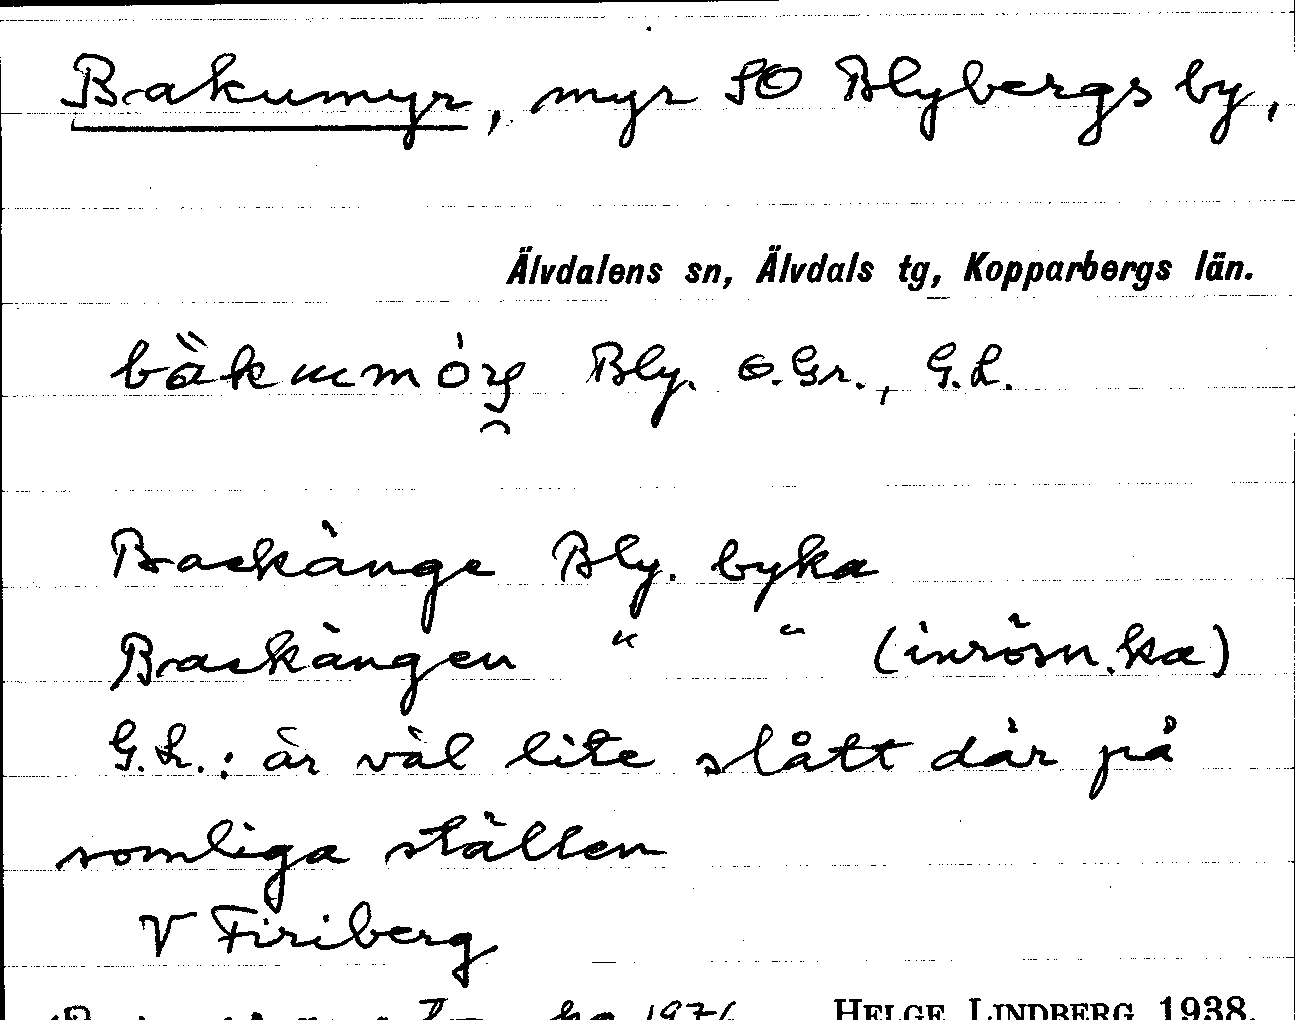 Bakumyr, myr SO Blybergs by,
Älvdalens sn, Älvdals tg, Kopparbergs län.
Bly. O.Gr., G.L.
Backänge Bly. byka
Backängen " " (inrösn.ka)
G.L.: är väl lite slått där på
somliga ställen
V Firiberg
1976 HELGE LINDBERG 1938.